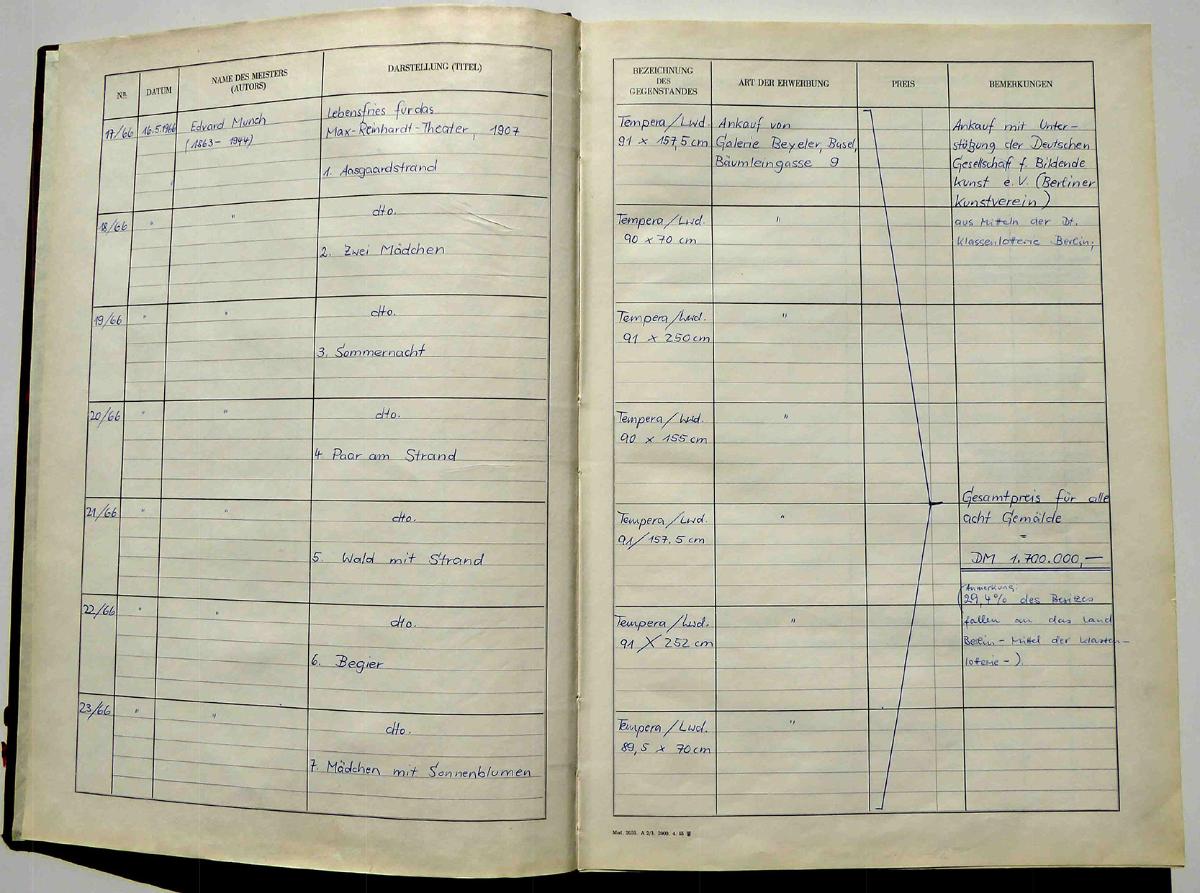 NR.
DATUM
NAME DES MEISTERS
(AUTORS)
DARSTELLUNG (TITEL)
17/66
16.5.1966
Edvard Munch
(1863 - 1944)
Lebensfries für das
Max-Reinhardt-Theater, 1907
1. Aasgaardstrand
18/66
"
"
dto.
2. Zwei Mädchen
19/66
"
"
dto.
3. Sommernacht
20/66
"
"
dto.
4 Paar am Strand
21/66
"
"
dto.
5. Wald mit Strand
22/66
"
"
dto.
6. Begier
23/66
"
"
dto.
7. Mädchen mit Sonnenblumen
BEZEICHNUNG
DES
GEGENSTANDES
ART DER ERWERBUNG
PREIS
BEMERKUNGEN
Tempera/Lwd.
91 x 157,5 cm
Ankauf von
Galerie Beyeler, Basel,
Bäumleingasse 9
Ankauf mit Unter-
stützung der Deutschen
Gesellschaft f. Bildende
Kunst e.V. (Berliner
Kunstverein)
Tempera/Lwd.
90 x 70 cm
"
aus Mitteln der Dt.
Klassenlotterie Berlin;
Tempera/Lwd.
91 x 250 cm
"
Tempera/Lwd.
90 x 155 cm
"
Gesamtpreis für alle
acht Gemälde
=
DM 1.700.000,—
Tempera/Lwd.
91/157,5 cm
"
(Anmerkung:
29,4% des Besitzes
fallen an das Land
Berlin - Mittel der Klassen-
lotterie - ).
Tempera/Lwd.
91 X 252 cm
"
Tempera/Lwd.
89,5 x 70 cm
"